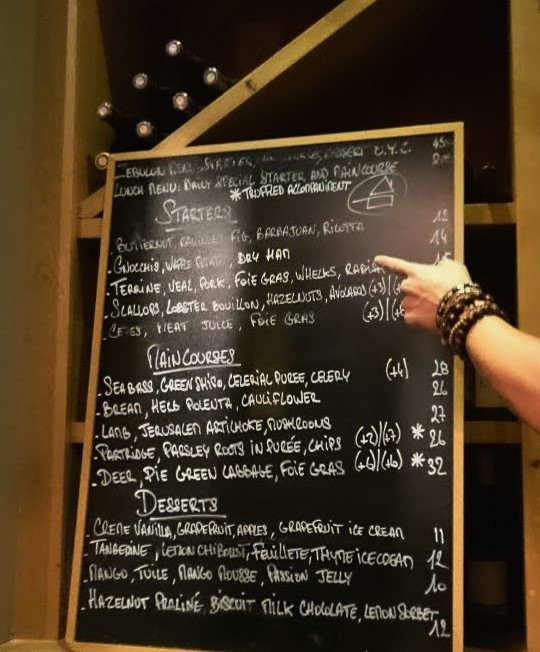 ZEBULON MENU: STARTER, DESSERT O.Y.C. 45
LUNCH MENU: DAILY SPECIAL STARTER AND MAINCOURSE
*TRUFFLED ACCOMPANIMENT
STARTERS
- BUTTERNUT, FIG, BARBAJUAN, RICOTTA 12
- GNOCCHIS, DRY HAM 14
- TERRINE, VEAL, PORK, FOIE GRAS, WHELKS,
- SCALLOPS, LOBSTER BOUILLON, HAZELNUTS, AVOCADOS (+3)
- CEPES, MEAT JUICE, FOIE GRAS (+3)
MAIN COURSES
- SEABASS, GREEN SHISO, CELERIAC PUREE, CELERY (+4) 28
- BREAM, HERB POLENTA, CAULIFLOWER 26
- LAMB, JERUSALEM ARTICHOKE, MUSHROOMS 27
PARTRIDGE, PARSLEY ROOTS IN PURÉE, CHIPS (+2)(+7) * 26
- DEER, PIE GREEN CABBAGE, FOIE GRAS (+6)(+6) * 32
DESSERTS
- CREME VANILLA, GRAPEFRUIT, APPLES, GRAPEFRUIT ICE CREAM 11
- TANGERINE, LEMON CHIBOUST, FEUILLETE, THYME ICECREAM 12
- MANGO, TUILE, MANGO MOUSSE, PASSION JELLY 10
- HAZELNUT PRALINÉ, BISCUIT MILK CHOCOLATE, LEMON SORBET 12